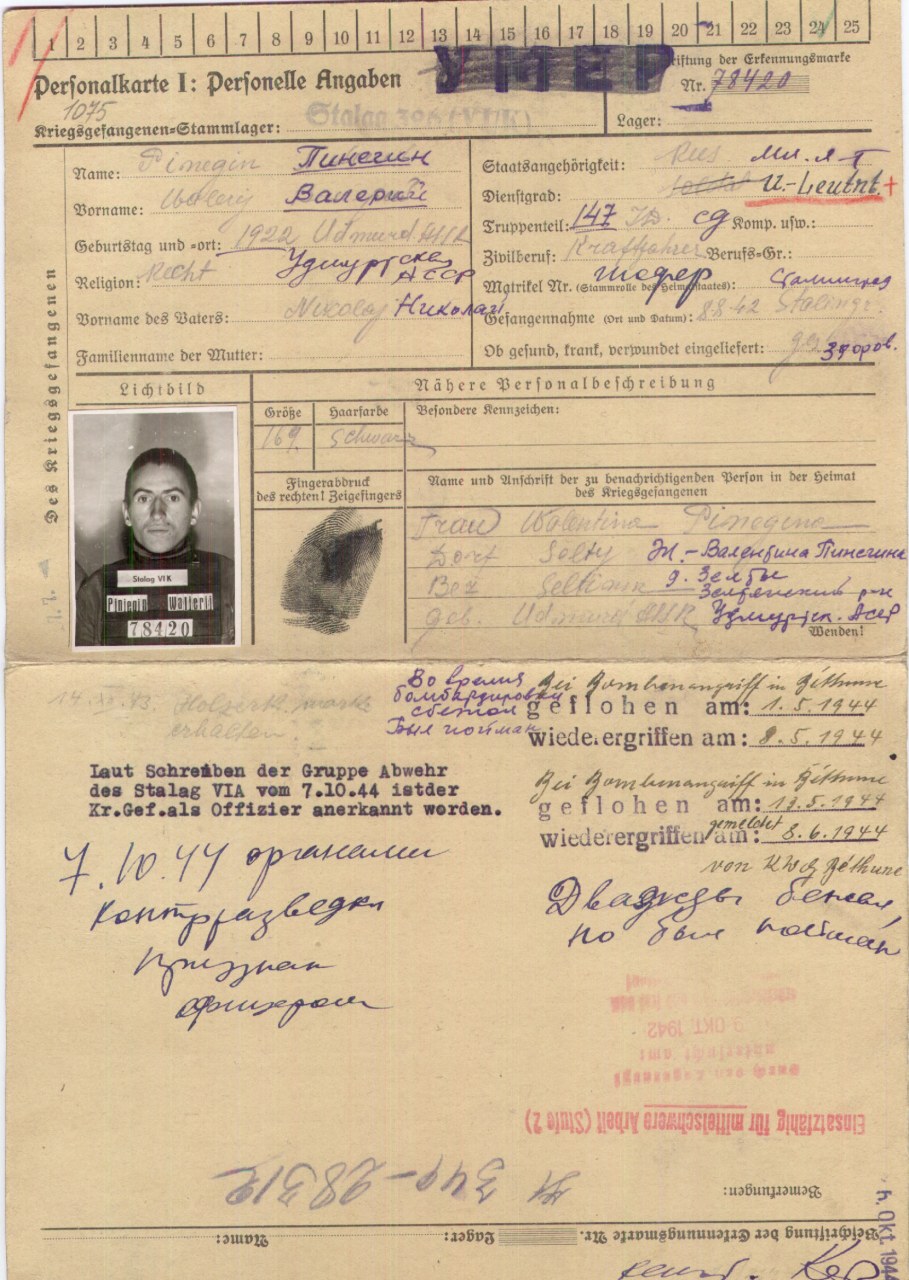 1 2 3 4 5 6 7 8 9 10 11 12 13 14 15 16 17 18 19 20 21 22 23 24 25
Personalkarte I: Personelle Angaben
УМЕР
Beschriftung der Erkennungsmarke
Nr. 78420
1075
Kriegsgefangenen-Stammlager: Stalag 326 (VI K)
Lager:
Des Kriegsgefangenen
Name: Pinegin Пинегин
Vorname: Walerij Валерий
Geburtstag und -ort: 1922 Udmurd ASSR
Удмуртская АССР
Religion:
Vorname des Vaters: Nikolaj Николай
Familienname der Mutter:
Staatsangehörigkeit: Rus мл. л-т
Dienstgrad: Soldat U.-Leutnt. +
Truppenteil: 147 I.D. сд Komp. usw.:
Zivilberuf: Kraftfahrer Berufs-Gr.:
шофер
Matrikel Nr. (Stammrolle des Heimatstaates):
Сталинград
Gefangennahme (Ort und Datum): 8.8.42 Stalingr.
Ob gesund, krank, verwundet eingeliefert: здоров.
Lichtbild
Nähere Personalbeschreibung
Größe Haarfarbe Besondere Kennzeichen:
169 schwarz
Fingerabdruck
des rechten! Zeigefingers
Name und Anschrift der zu benachrichtigenden Person in der Heimat
des Kriegsgefangenen
Frau Walentina Pinegina
Dorf Selty Ж.-Валентина Пинегина
Bez. д. Зелты
Зелтенский р-н
geb. Udmurd ASSR Удмуртск. АССР
Wenden!
Stalag VI K
Piniegin Walierii
78420
14. XI. 43. erhalten.
Во время
бомбардировки
сбежал
Был пойман
Bei Bombenangriff in Béthune
geflohen am: 1.5.1944
wiederergriffen am: 8.5.1944
Bei Bombenangriff in Béthune
geflohen am: 13.5.1944
wiederergriffen am: gemeldet 8.6.1944
von Béthune
Laut Schreiben der Gruppe Abwehr
des Stalag VIA vom 7.10.44 istder
Kr.Gef.als Offizier anerkannt worden.
7.10.44 органами
контрразведки
признан
офицером
Дважды бежал,
но был пойман
9. OKT. 1942
Einsatzfähig für mittelschwere Arbeit (Stufe 2)
Bemerkungen:
Beschriftung der Erkennungsmarke Nr.
Lager:
Name:
Okt 1944